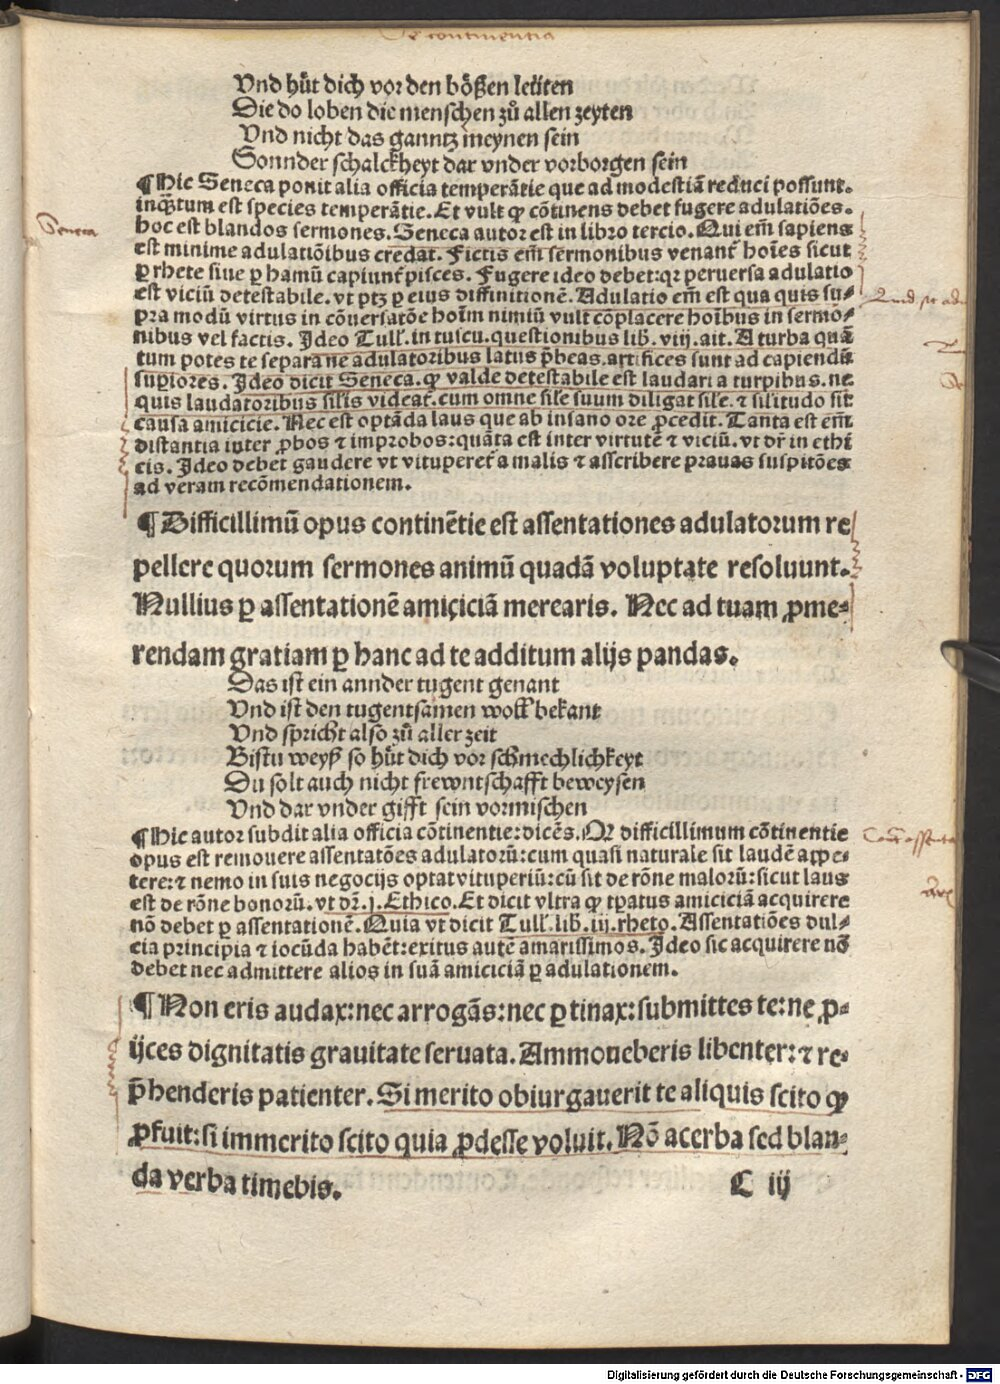 De continentia
Vnd hüt dich vor den bößen leüten
Die do loben die menschen zů allen zeyten
Vnd nicht das ganntz meynen sein
Sonnder schalckheyt dar vnder vorborgen sein
¶Hic Seneca ponit alia officia temperãtie que ad modestiã reduci possunt.
inq̃tum est species temperãtie. Et vult ꝙ cõtinens debet fugere adulatiões.
hoc est blandos sermones. Seneca autor est in libro tercio. Qui em̃ sapiens
est minime adulatiõibus credat. Fictis em̃ sermonibus venant᷑ hoĩes sicut
ꝑ rhete siue ꝑ hamũ capiunt᷑ pisces. Fugere ideo debet:qꝛ peruersa adulatio
est viciũ detestabile. vt ptꝫ ꝑ eius diffinitionẽ. Adulatio em̃ est qua quis su⸗
pra modũ virtus in cõuersatõe hoĩm nimiũ vult cõplacere hoĩbus in sermo⸗
nibus vel factis. Ideo Tull̃. in tuscu. questionibus lib. viij. ait. A turba quã
tum potes te separa ne adulatoribus latus p̃beas. artifices sunt ad capiendũ
supiores. Ideo dicit Seneca. ꝙ valde detestabile est laudari a turpibus. ne
quis laudatoribus sil̃is videat᷑. cum omne sil̃e suum diligat sil̃e. ⁊ sil̃itudo sit
causa amicicie. Nec est optãda laus que ab insano ore ꝓcedit. Tanta est em̃
distantia inter ꝓbos ⁊ improbos:quãta est inter virtutẽ ⁊ viciũ. vt dr̃ in ethi
cis. Ideo debet gaudere vt vituperet᷑ a malis ⁊ asscribere prauas suspitões
ad veram recõmendationem.
¶Difficillimũ opus continẽtie est assentationes adulatorum re
pellere quorum sermones animũ quadã voluptate resoluunt.
Nullius ꝑ assentationẽ amiciciã merearis. Nec ad tuam ꝓme⸗
rendam gratiam ꝑ hanc ad te additum alijs pandas.
Das ist ein annder tugent genant
Vnd ist den tugentsamen woll bekant
Vnd spricht also zů aller zeit
Bistu weyß so hüt dich vor schmechlichkeyt
Du solt auch nicht frewntschafft beweysen
Vnd dar vnder gifft sein vormischen
¶Hic autor subdit alia officia cõtinentie:dicẽs. Qꝛ difficillimum cõtinentie
opus est remouere assentatões adulatorũ:cum quasi naturale sit laudẽ appe⸗
tere:⁊ nemo in suis negocijs optat vituperiũ:cũ sit de rõne malorũ:sicut laus
est de rõne bonorũ. vt dr̃. j. Ethico. Et dicit vltra ꝙ tꝑatus amiciciã acquirere
nõ debet ꝑ assentationẽ. Quia vt dicit Tull̃. lib. iij. rheto. Assentatiões dul⸗
cia principia ⁊ iocũda habẽt:exitus autẽ amarissimos. Ideo sic acquirere nõ
debet nec admittere alios in suã amiciciã ꝑ adulationem.
¶Non eris audax:nec arrogãs:nec ꝑtinax:submittes te:ne ꝓ⸗
ijces dignitatis grauitate seruata. Ammoneberis libenter:⁊ re⸗
p̃henderis patienter. Si merito obiurgauerit te aliquis scito ꝙ
ꝓfuit:si immerito scito quia ꝓdesse voluit. Nõ acerba sed blan⸗
da verba timebis.
C iij
Seneca
Digitalisierung gefördert durch die Deutsche Forschungsgemeinschaft - DFG